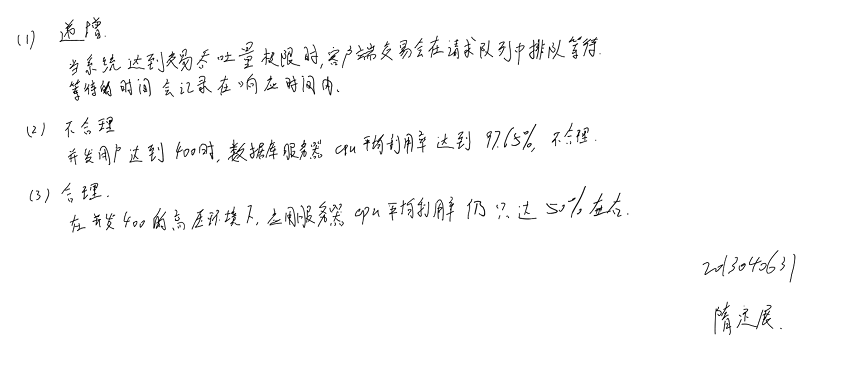 (1) 递增.
当系统达到交易吞吐量极限时,客户端交易会在请求队列中排队等待.
等待的时间会记录在响应时间内.
(2) 不合理
并发用户达到400时,数据库服务器cpu平均利用率达到97.65%,不合理.
(3) 合理.
在并发400的高压环境下,应用服务器cpu平均利用率仍只达50%左右.
2013040631
隋 展.